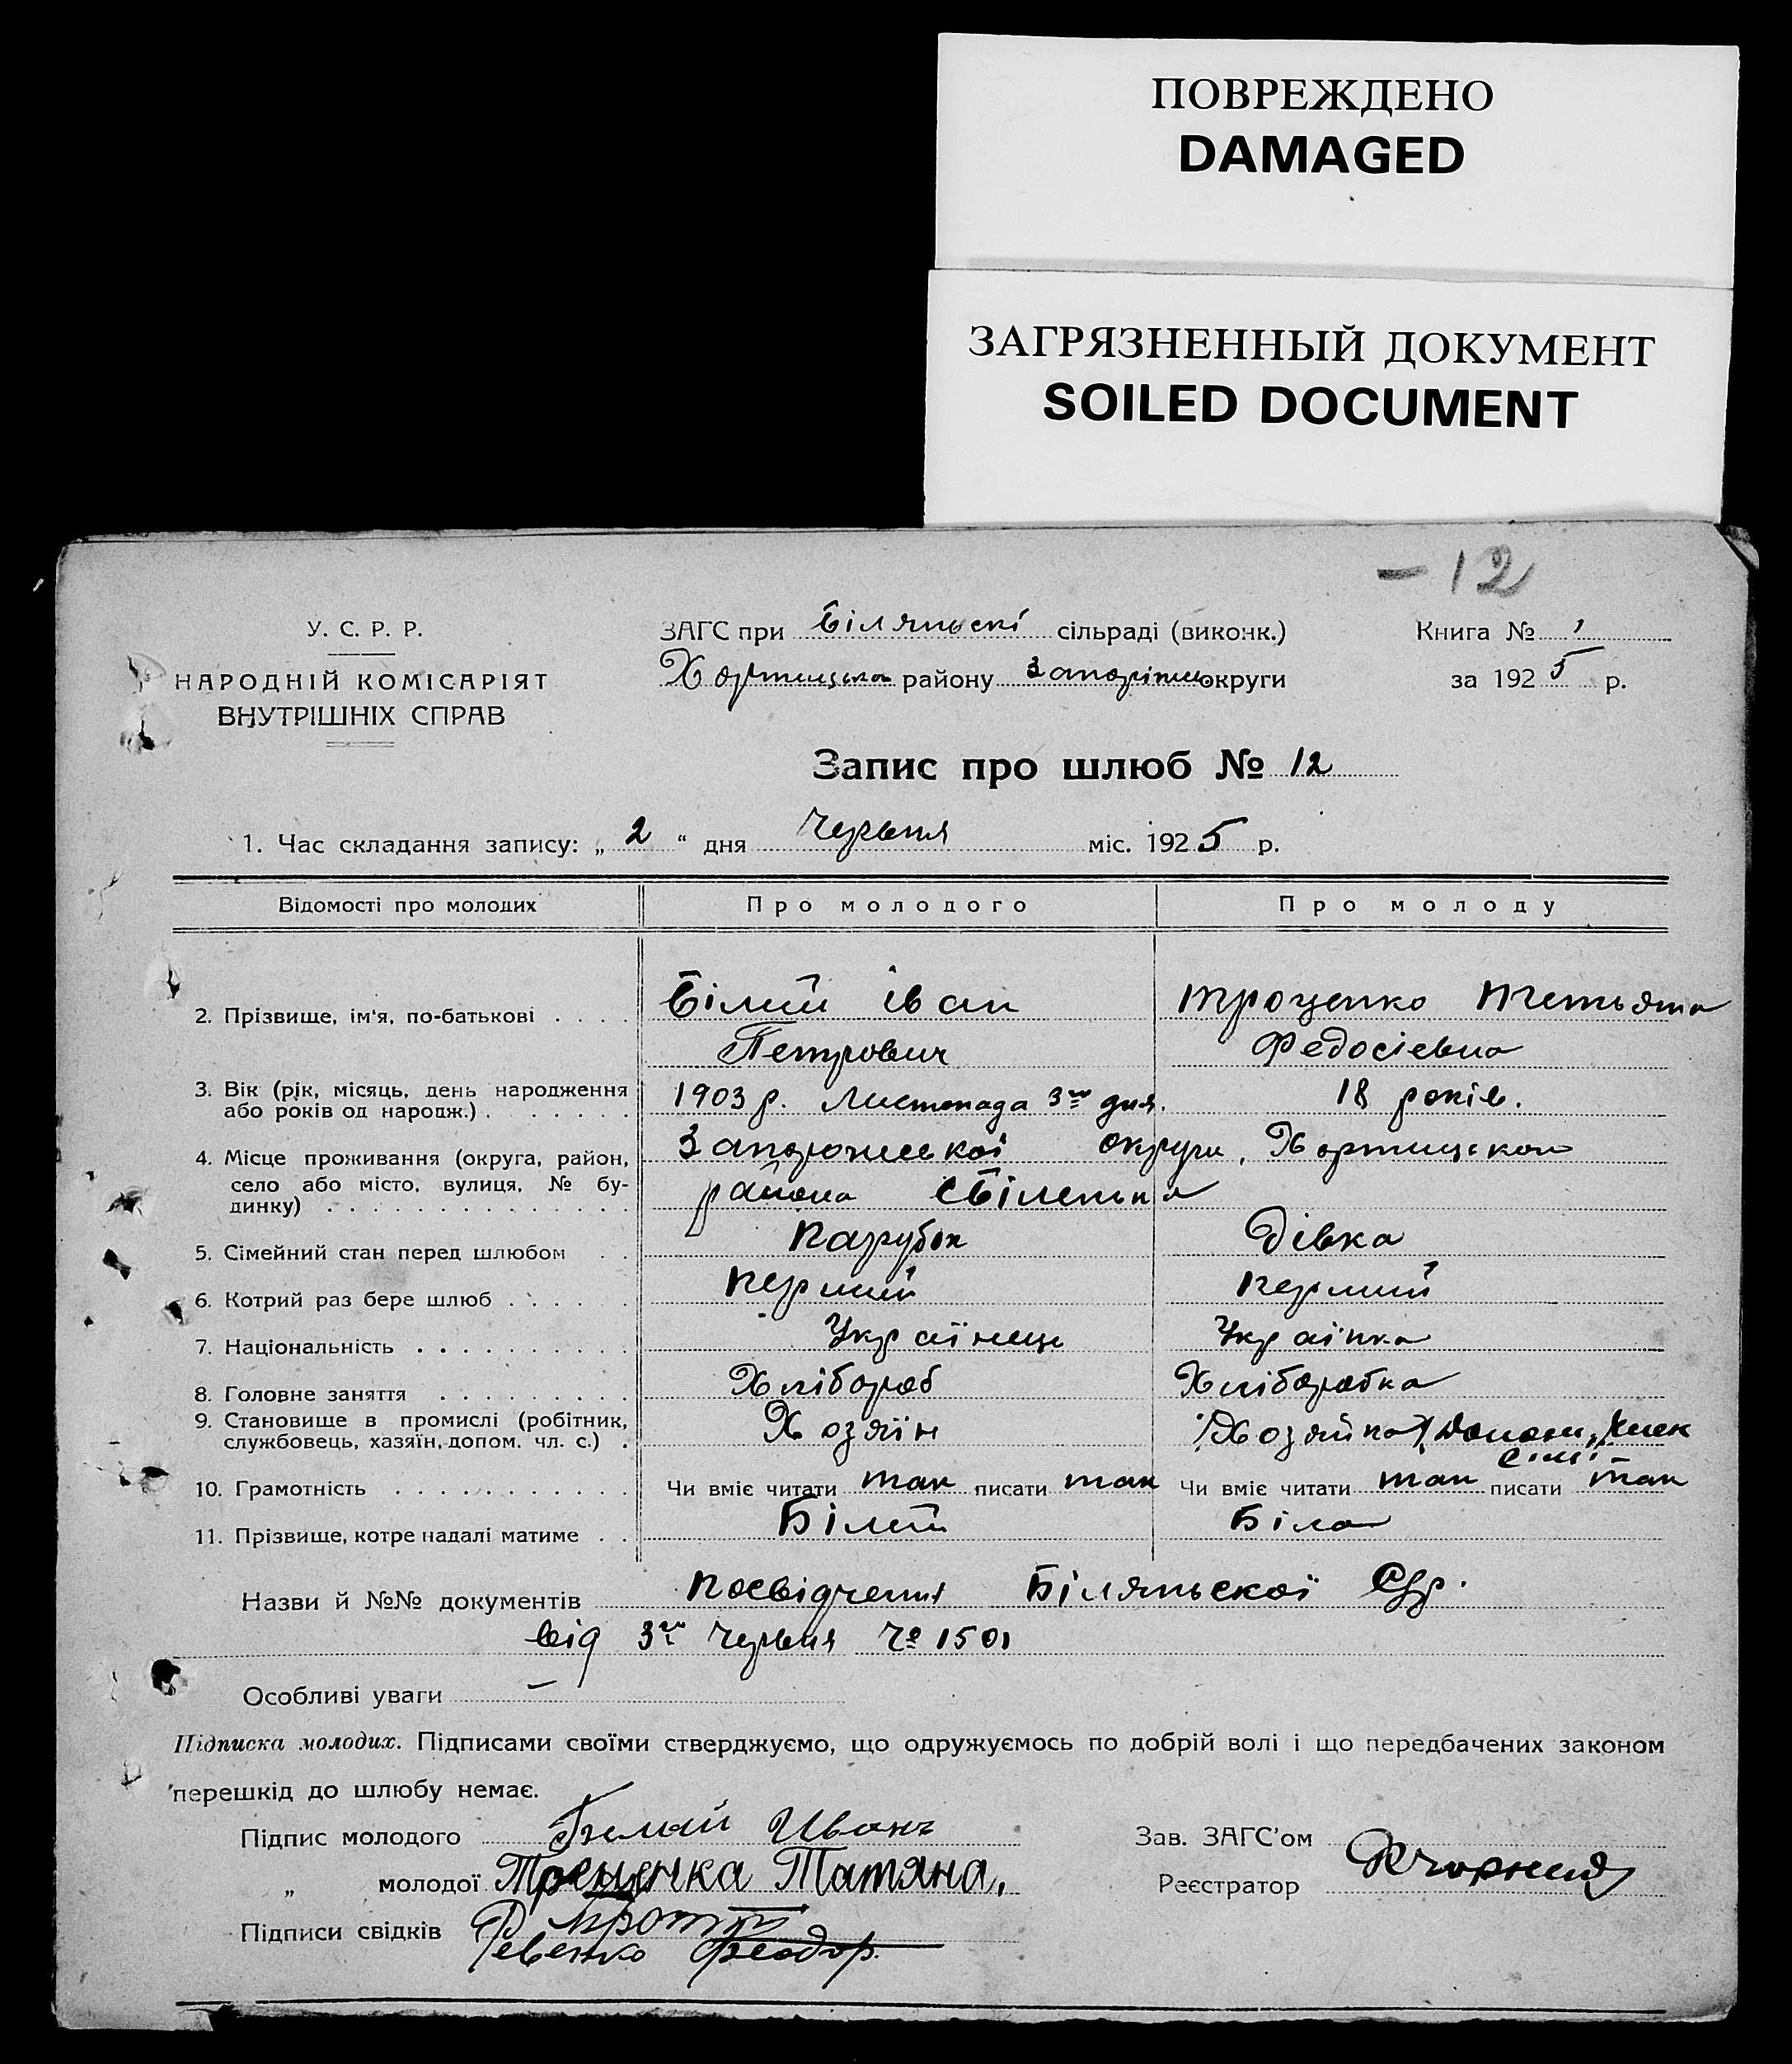 ПОВРЕЖДЕНО
DAMAGED
ЗАГРЯЗНЕННЫЙ ДОКУМЕНТ
SOILED DOCUMENT
— 12
У. С. Р. Р.
НАРОДНІЙ КОМІСАРІЯТ
ВНУТРІШНІХ СПРАВ
ЗАГС при Біляньскі сільраді (виконк.)
Хортицьком району Запоріжж округи
Книга № 1
за 1925 р.
Запис про шлюб № 12
1. Час складання запису: „ 2 “ дня Червня міс. 1925 р.
Відомості про молодих Про молодого Про молоду
2. Прізвище, ім'я, по-батькові . . . . Білий Іван Троценко Тетьяна
Петрович Федосієвна
3. Вік (рік, місяць, день народження
або років од народж.) . . . . . . 1903 р. Листопада 3го дня. 18 років.
4. Місце проживання (округа, район,
село або місто, вулиця, № бу-
динку) . . . . . . . . . . . . . .
Запорожської округи, Хортицького
района
5. Сімейний стан перед шлюбом . . Парубок Дівка
6. Котрий раз бере шлюб . . . . . Перший Перший
7. Національність . . . . . . . . . . Українець Українка
8. Головне заняття . . . . . . . . . Хлібороб Хліборобка
9. Становище в промислі (робітник,
службовець, хазяїн, допом. чл. с.) . Хозяїн Хозяйка
сімї
10. Грамотність . . . . . . . . . . . Чи вміє читати так писати так Чи вміє читати так писати так
11. Прізвище, котре надалі матиме . . Білий Біла
Назви й №№ документів Посвідчення Біляньскої С/р.
від 3го Червня № 1501
Особливі уваги —
Підписка молодих. Підписами своїми стверджуємо, що одружуємось по добрій волі і що передбачених законом
перешкід до шлюбу немає.
Підпис молодого Белай Иванъ
„ молодої Троценка Татяна.
Підписи свідків
Ревенко Феодор.
Зав. ЗАГС'ом
Реєстратор